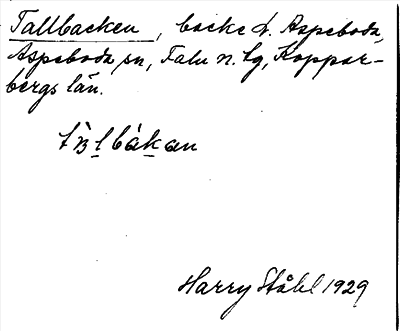 Tallbacken, backe t. Aspeboda,
Aspeboda sn, Falu n. tg, Koppar-
bergs län.
Harry Ståhl 1929